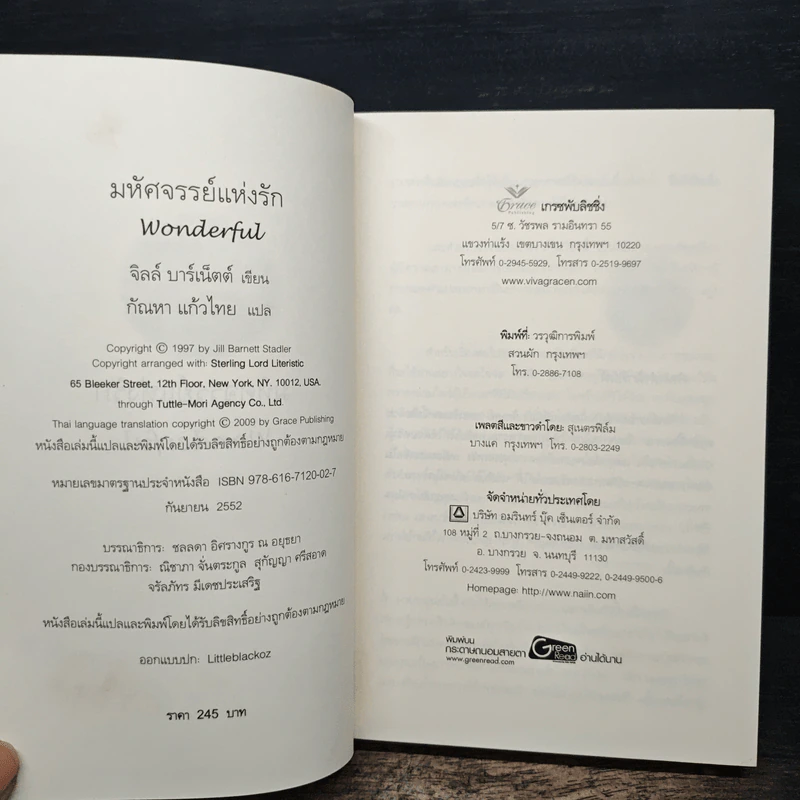 มหัศจรรย์แห่งรัก
Wonderful
จิลล์ บาร์เน็ตต์ เขียน
กัณหา แก้วไทย แปล
Copyright © 1997 by Jill Barnett Stadler
Copyright arranged with: Sterling Lord Literistic
65 Bleeker Street, 12th Floor, New York, NY. 10012, USA.
through Tuttle-Mori Agency Co., Ltd
Thai language translation copyright © 2009 by Grace Publishing
หนังสือเล่มนี้แปลและพิมพ์โดยได้รับลิขสิทธิ์อย่างถูกต้องตามกฎหมาย
หมายเลขมาตรฐานประจำหนังสือ ISBN 978-616-7120-02-7
กันยายน 2552
บรรณาธิการ: ชลลดา อิศรางกูร ณ อยุธยา
กองบรรณาธิการ: ณิชาภา จั่นตระกูล สุกัญญา ศรีสอาด
จรัลภัทร มีเดชประเสริฐ
หนังสือเล่มนี้แปลและพิมพ์โดยได้รับลิขสิทธิ์อย่างถูกต้องตามกฎหมาย
ออกแบบปก: Littleblackoz
ราคา 245 บาท
Grace Publishing เกรซพับลิชชิ่ง
5/7 ซ. วัชรพล รามอินทรา 55
แขวงท่าแร้ง เขตบางเขน กรุงเทพฯ 10220
โทรศัพท์ 0-2945-5929, โทรสาร 0-2519-9697
www.vivagracen.com
พิมพ์ที่: วรวุฒิการพิมพ์
สวนผัก กรุงเทพฯ
โทร. 0-2886-7108
เพลตสีและขาวดำโดย: สุเนตรฟิล์ม
บางแค กรุงเทพฯ โทร. 0-2803-2249
จัดจำหน่ายทั่วประเทศโดย
บริษัท อมรินทร์ บุ๊ค เซ็นเตอร์ จำกัด
108 หมู่ที่ 2 ถ.บางกรวย-จงถนอม ต. มหาสวัสดิ์
อ. บางกรวย จ. นนทบุรี 11130
โทรศัพท์ 0-2423-9999 โทรสาร 0-2449-9222, 0-2449-9500-6
Homepage: http://www.naiin.com
พิมพ์บน
กระดาษถนอมสายตา Green Read อ่านได้นาน
www.greenread.com